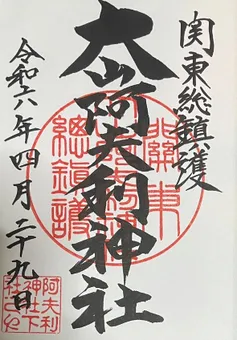 関東総鎮護
大山阿夫利神社
令和六年四月二十九日
關東
總鎮護
阿夫利
神社下
社之印